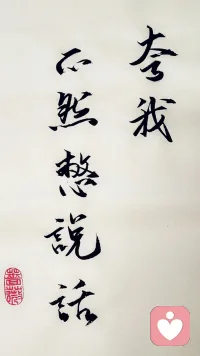 夸我
不然憋說話